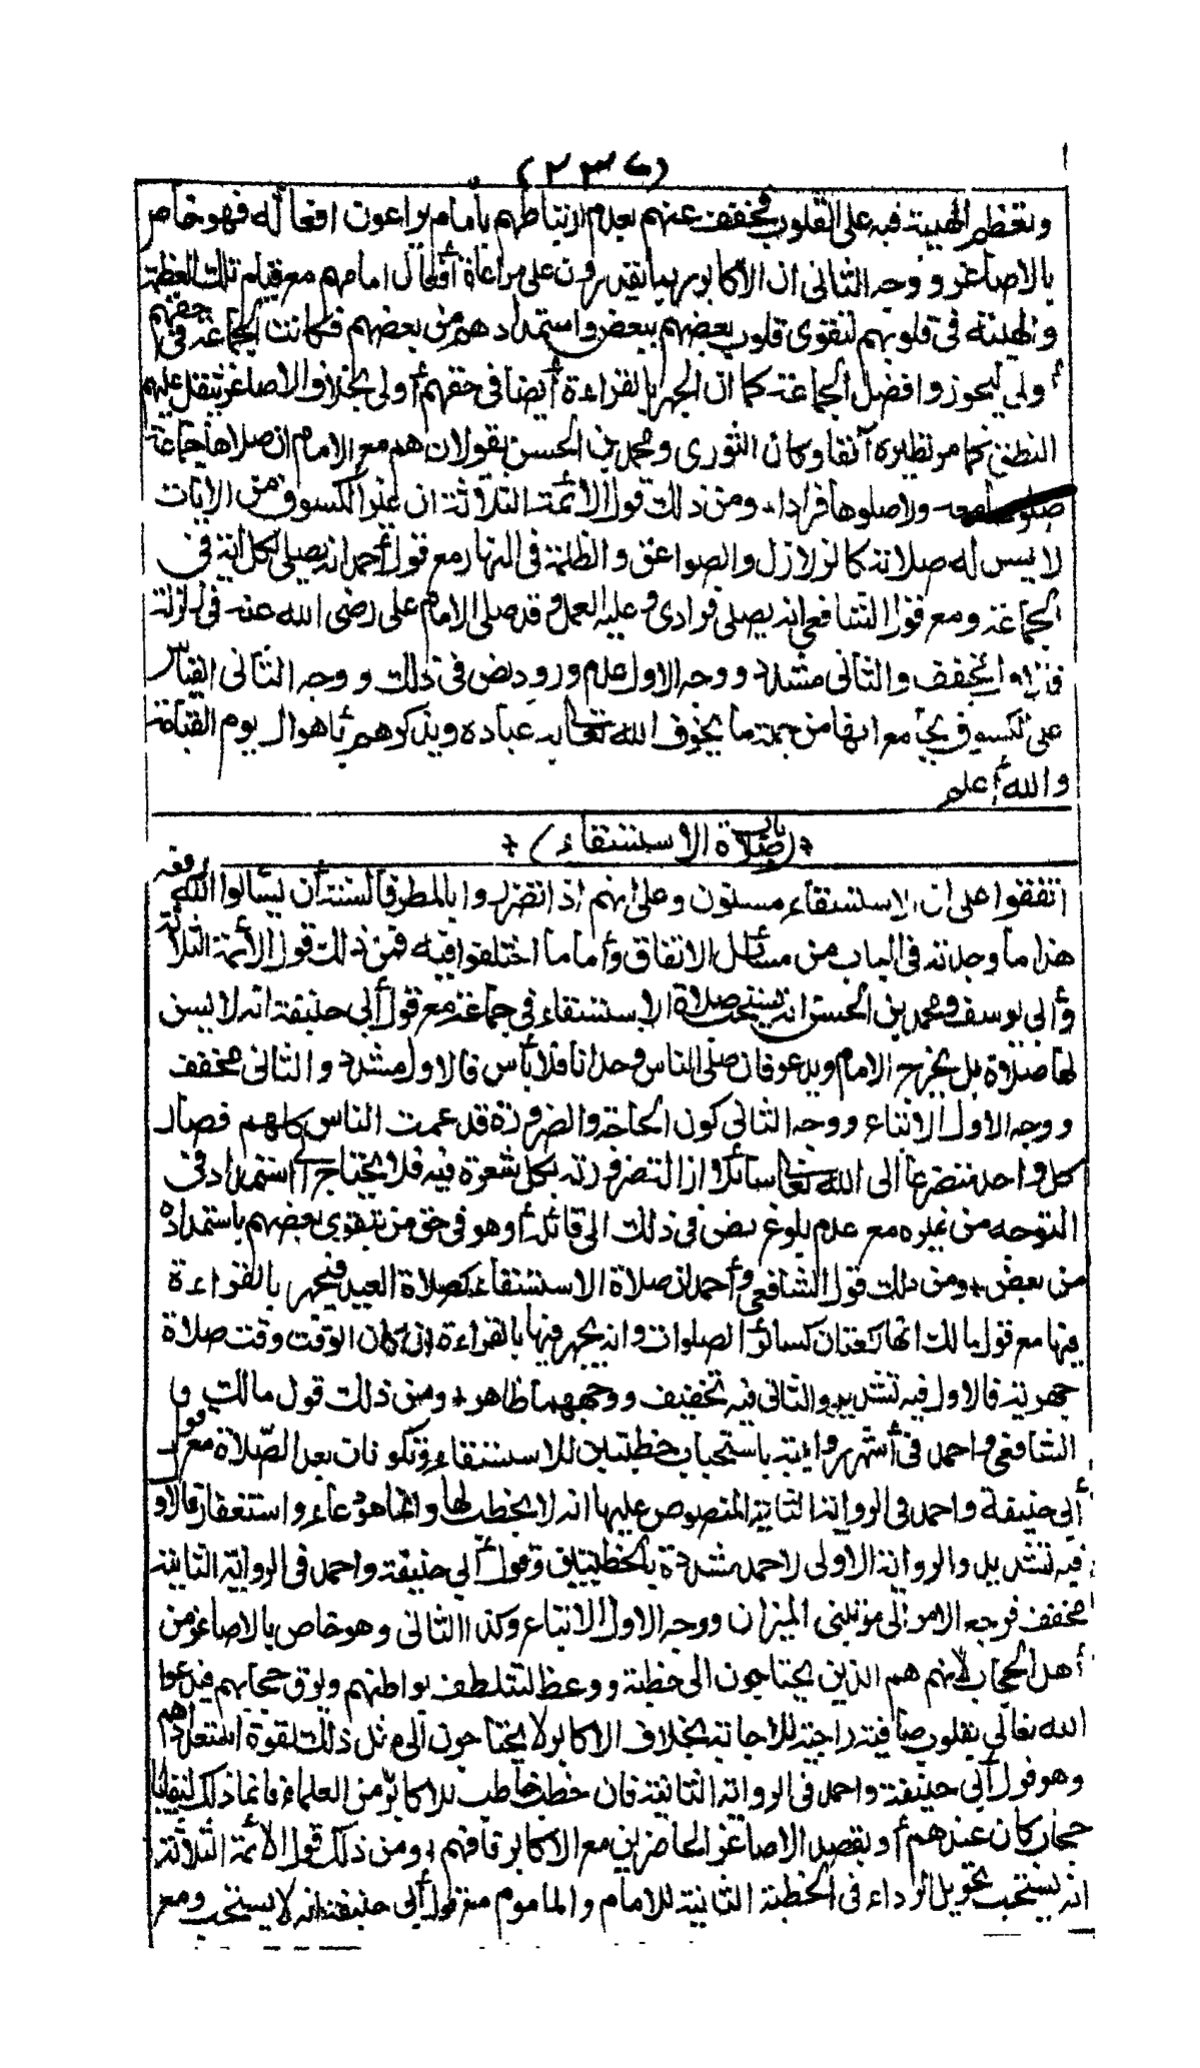 (٢٣٧)
وتعظم الهيبة فيه على القلوب فخفف عنهم بعدم ارتباطهم بأمام يراعون افعاله فهو خاص
بالاصاغر ووجه الثانى ان الأكابر ربما يقدرون على مراعاة أفعال امامهم مع قيام تلك العظمة
والهيبة فى قلوبهم لتقوى قلوب بعضهم ببعض واستمدادهم من بعضهم فكانت الجماعة فى حقهم
أولى ليحوزوا فضل الجماعة كما ان الجهر بالقراءة أيضا فى حقهم أولى بخلاف الاصاغر يثقل عليهم
النطق كما مر نظيره آنفا وكان الثورى ومحمد بن الحسن يقولان هم مع الامام ان صلاها جماعة
صلوها معه والاصلوها فرادا ٭ ومن ذلك قول الأئمة الثلاثة ان غير الكسوف من الآيات
لا يسن له صلاة كالزلازل والصواعق والظلمة فى النهار مع قول أحمد انه يصلى لكل آية فى
الجماعة ومع قول الشافعى انه يصلى فرادى وعليه العمل وقد صلى الامام على رضى الله عنه فى زلزلة
فالاول مخفف والثانى مشدد ووجه الاول عدم ورود نص فى ذلك ووجه الثانى القياس
على الكسوف بجامع انها من جملة ما يخوف الله تعالى به عباده ويذكرهم بأهوال يوم القيامة
والله أعلم
٭ (باب صلاة الاستسقاء) ٭
اتفقوا على ان الاستسقاء مسنون وعلى انهم اذا تضرروا بالمطر فالسنة أن يسألوا الله رفعه
هذا ما وجدته فى الباب من مسائل الاتفاق وأما ما اختلفوا فيه فمن ذلك قول الأئمة الثلاثة
وأبى يوسف ومحمد بن الحسن انه يستحب صلاة الاستسقاء فى جماعة مع قول أبى حنيفة انه لا يسن
لها صلاة بل يخرج الامام ويدعو فان صلى الناس وحدانا فلا بأس فالاول مشدد والثانى مخفف
ووجه الاول الاتباع ووجه الثانى كون الحاجة والضرورة قد عمت الناس كلهم فصار
كل واحد متضرعا الى الله تعالى سائلا ازالة ضرورته بكل شعرة فيه فلا يحتاج الى استمداد فى
التوجه من غيره مع عدم بلوغ نص فى ذلك الى قائله أو هو فى حق من يتقوى بعضهم باستمداده
من بعض ٭ ومن ذلك قول الشافعى وأحمد ان صلاة الاستسقاء كصلاة العيد فيجهر بالقراءة
فيها مع قول مالك انها ركعتان كسائر الصلوات وانه يجهر فيها بالقراءة ان كان الوقت وقت صلاة
جهرية فالاول فيه تشديد والثانى فيه تخفيف ووجههما ظاهر ٭ ومن ذلك قول مالك و
الشافعى واحمد فى أشهر روايتيه باستحباب خطبتين للاستسقاء وتكونان بعد الصلاة مع قول
أبى حنيفة واحمد فى الرواية الثانية المنصوص عليها انه لا يخطب لها وانما هو دعاء واستغفار فالاول
فيه تشديد والرواية الاولى لاحمد مشددة بالخطبتين وقول أبى حنيفة واحمد فى الرواية الثانية
مخفف فرجع الامر الى مرتبتى الميزان ووجه الاول الاتباع وكذا الثانى وهو خاص بالاصاغر من
أهل الحجاب لأنهم هم الذين يحتاجون الى خطبة ووعظ لتتلطف بواطنهم ويرق حجابهم فيدعوا
الله تعالى بقلوب صافية راجية للاجابة بخلاف الاكابر لا يحتاجون الى مثل ذلك لقوة استعدادهم
وهو قول أبى حنيفة واحمد فى الرواية الثانية فان خطب خاطب للاكابر من العلماء فانما ذلك لبقايا
حجاب كان عندهم أو بقصد الاصاغر الحاضرين مع الاكابر فافهم ٭ ومن ذلك قول الأئمة الثلاثة
انه يستحب تحويل الرداء فى الخطبة الثانية للامام والمأموم مع قول أبى حنيفة انه لا يستحب ومع